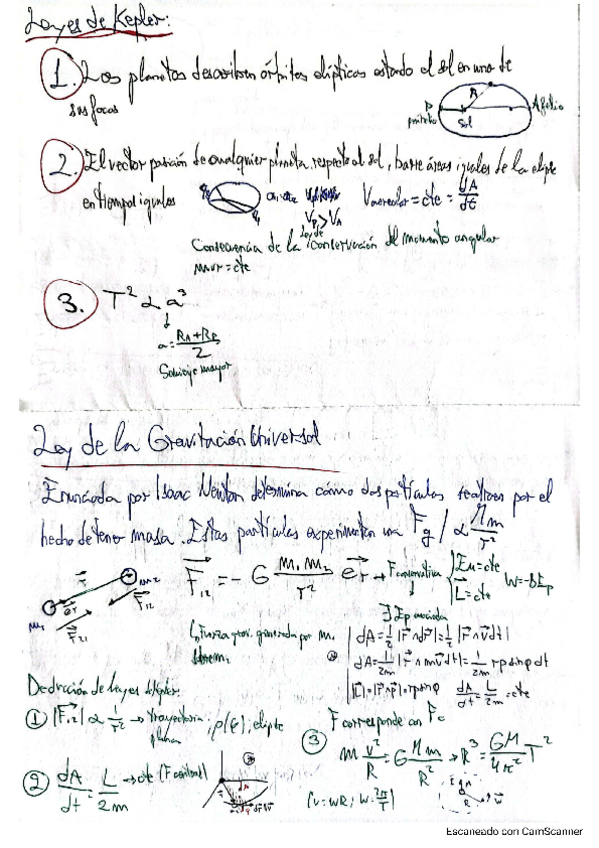 Leyes de Kepler:
1. Los planetas describen órbitas elípticas estando el sol en uno de
sus focos
P
perihelio
R
Sol
A felio
2. El vector posición de cualquier planeta, respecto al sol, barre áreas iguales de la elipse
en tiempos iguales
Vareolar = cte = dA/dt
Vp > VA
Consecuencia de la ley de conservación del momento angular
mvr = cte
3. T² α a³
a = (RA + Rp)/2
Semieje mayor
Ley de la Gravitación Universal
Enunciada por Isaac Newton determina cómo dos partículas por el
hecho de tener masa. Estas partículas experimentan una Fg / α Mm/r²
F12 = -G m1 m2/r² er → F conservativa { Em = cte
L = cte
W = -ΔEp
r
m2
F12
er
F21
m1
∃ Ep asociada
↳ Fuerza grav. generada por m1
sobre m2
dA = 1/2 |r ∧ dr| = 1/2 |r ∧ v dt|
dA = 1/2m |r ∧ m v dt| = 1/2m r p sin φ dt
|L| = |r ∧ p| = r p sin φ dA/dt = L/2m = cte
Deducción de leyes Kepler:
① |F12| α 1/r² → trayectoria plana, ρ(φ); elipte
② dA/dt = L/2m → cte (F central)
③ F corresponde con Fc
m v²/R = G Mm/R² → R³ = GM/4π² T²
(v = wR; w = 2π/T)
Escaneado con CamScanner